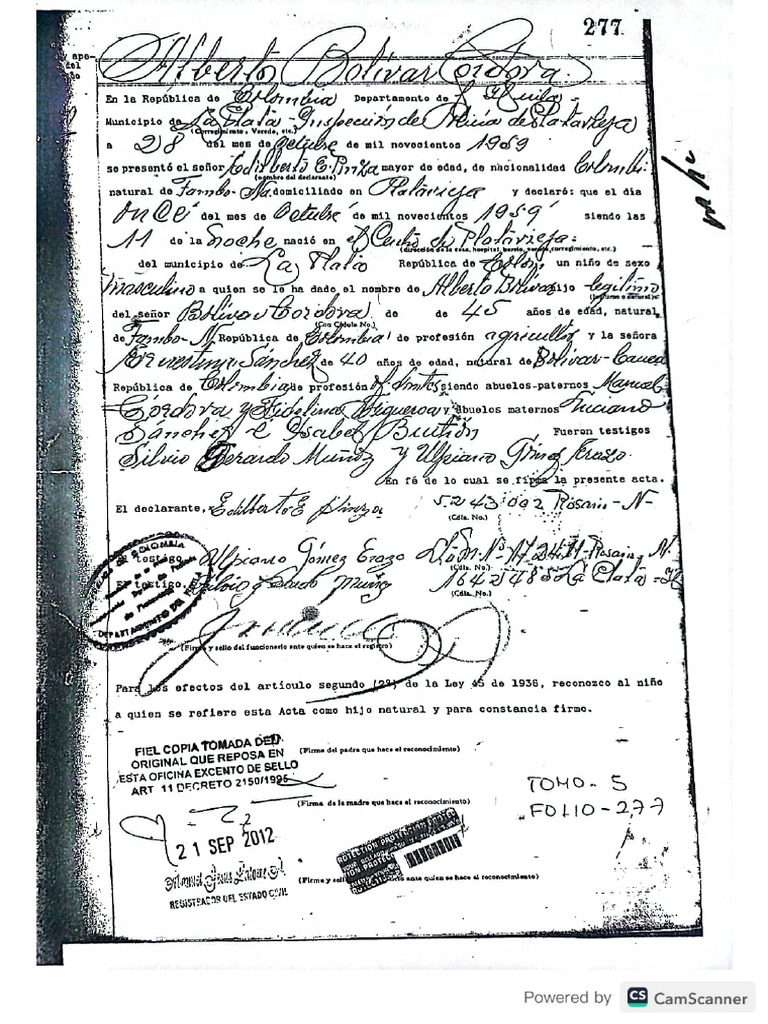 277
Alberto Bolivar Cordova.
En la República de Colombia Departamento de Huila-
Municipio de La Plata - Inspección de Policia de Platavieja
(Corregimiento, Vereda, etc.)
a 28 del mes de Octubre de mil novecientos 1959
se presentó el señor Edilberto E. Pinza mayor de edad, de nacionalidad Colombi-
(nombre del declarante)
natural de Tambo-Na. domiciliado en Platavieja y declaró: que el día
once del mes de Octubre de mil novecientos 1959 siendo las
11 de la noche nació en el Centro de Platavieja:
(dirección de la casa, hospital, barrio, vereda, corregimiento, etc.)
del municipio de La Plata República de Colom. un niño de sexo
masculino a quien se le ha dado el nombre de Alberto Bolivar hijo legitimo
del señor Bolivar Cordova de de 45 años de edad, natural
(Con Cédula No.)
de Tambo-N. República de Colombia de profesión agricultor y la señora
Sánchez de 40 años de edad, natural de Bolivar-Cauca
República de Colombia de profesión Of. siendo abuelos-paternos Manuel
Córdova y Fidelina Figueroa y Abuelos maternos Luciano
Sánchez e Isabel Fueron testigos
Silvio Gerardo Muñoz y Ulpiano Gómez Erazo.
En fé de lo cual se firma la presente acta.
El declarante, Edilberto E Pinza 5.243.002 Rosario-N-
(Cdla. No.)
El testigo, Ulpiano Gómez Erazo Rosario-N.
(Cdla. No.)
El testigo, Silvio Gerardo Muñoz La Plata-H
(Cdla. No.)
DEPARTAMENTO DEL
(Firma y sello del funcionario ante quien se hace el registro)
Para los efectos del artículo segundo (2º) de la Ley 45 de 1936, reconozco al niño
a quien se refiere esta Acta como hijo natural y para constancia firmo.
(Firma del padre que hace el reconocimiento)
FIEL COPIA TOMADA DEL
ORIGINAL QUE REPOSA EN
ESTA OFICINA EXCENTO DE SELLO
ART 11 DECRETO 2150/1995
(Firma de la madre que hace el reconocimiento)
TOMO - 5
FOLIO - 277
21 SEP 2012
REGISTRADOR DEL ESTADO CIVIL
(Firma y sello ante quien se hace el reconocimiento)
Powered by CS CamScanner